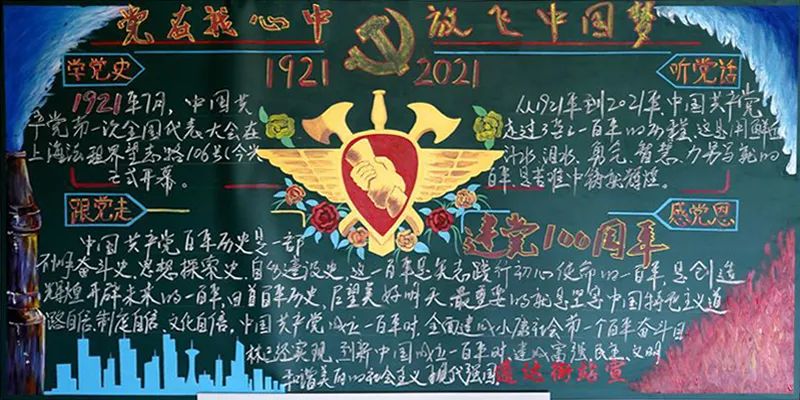 党在我心中 放飞中国梦
学党史
1921 2021
听党话
1921年7月，中国共
产党第一次全国代表大会在
上海法租界望志路106号(今兴
式开幕。
从1921年到2021年，中国共产党
走过了整整一百年的历程，这是用鲜血、
汗水、泪水、勇气、智慧、力量写就的
百年，是苦难中铸就辉煌。
跟党走
感党恩
建党100周年
中国共产党百年历史是一部
奋斗史，思想探索史，自身建设史，这一百年是矢志践行初心使命的一百年，是创造
辉煌开辟未来的一百年，回首百年历史，展望美好明天，最重要的就是坚定中国特色主义道
路自信、制度自信、文化自信。中国共产党成立一百年时，全面建成小康社会第一个百年奋斗目
标已经实现，到新中国成立一百年时，建成富强、民主、文明
和谐美丽的社会主义现代强国
宣